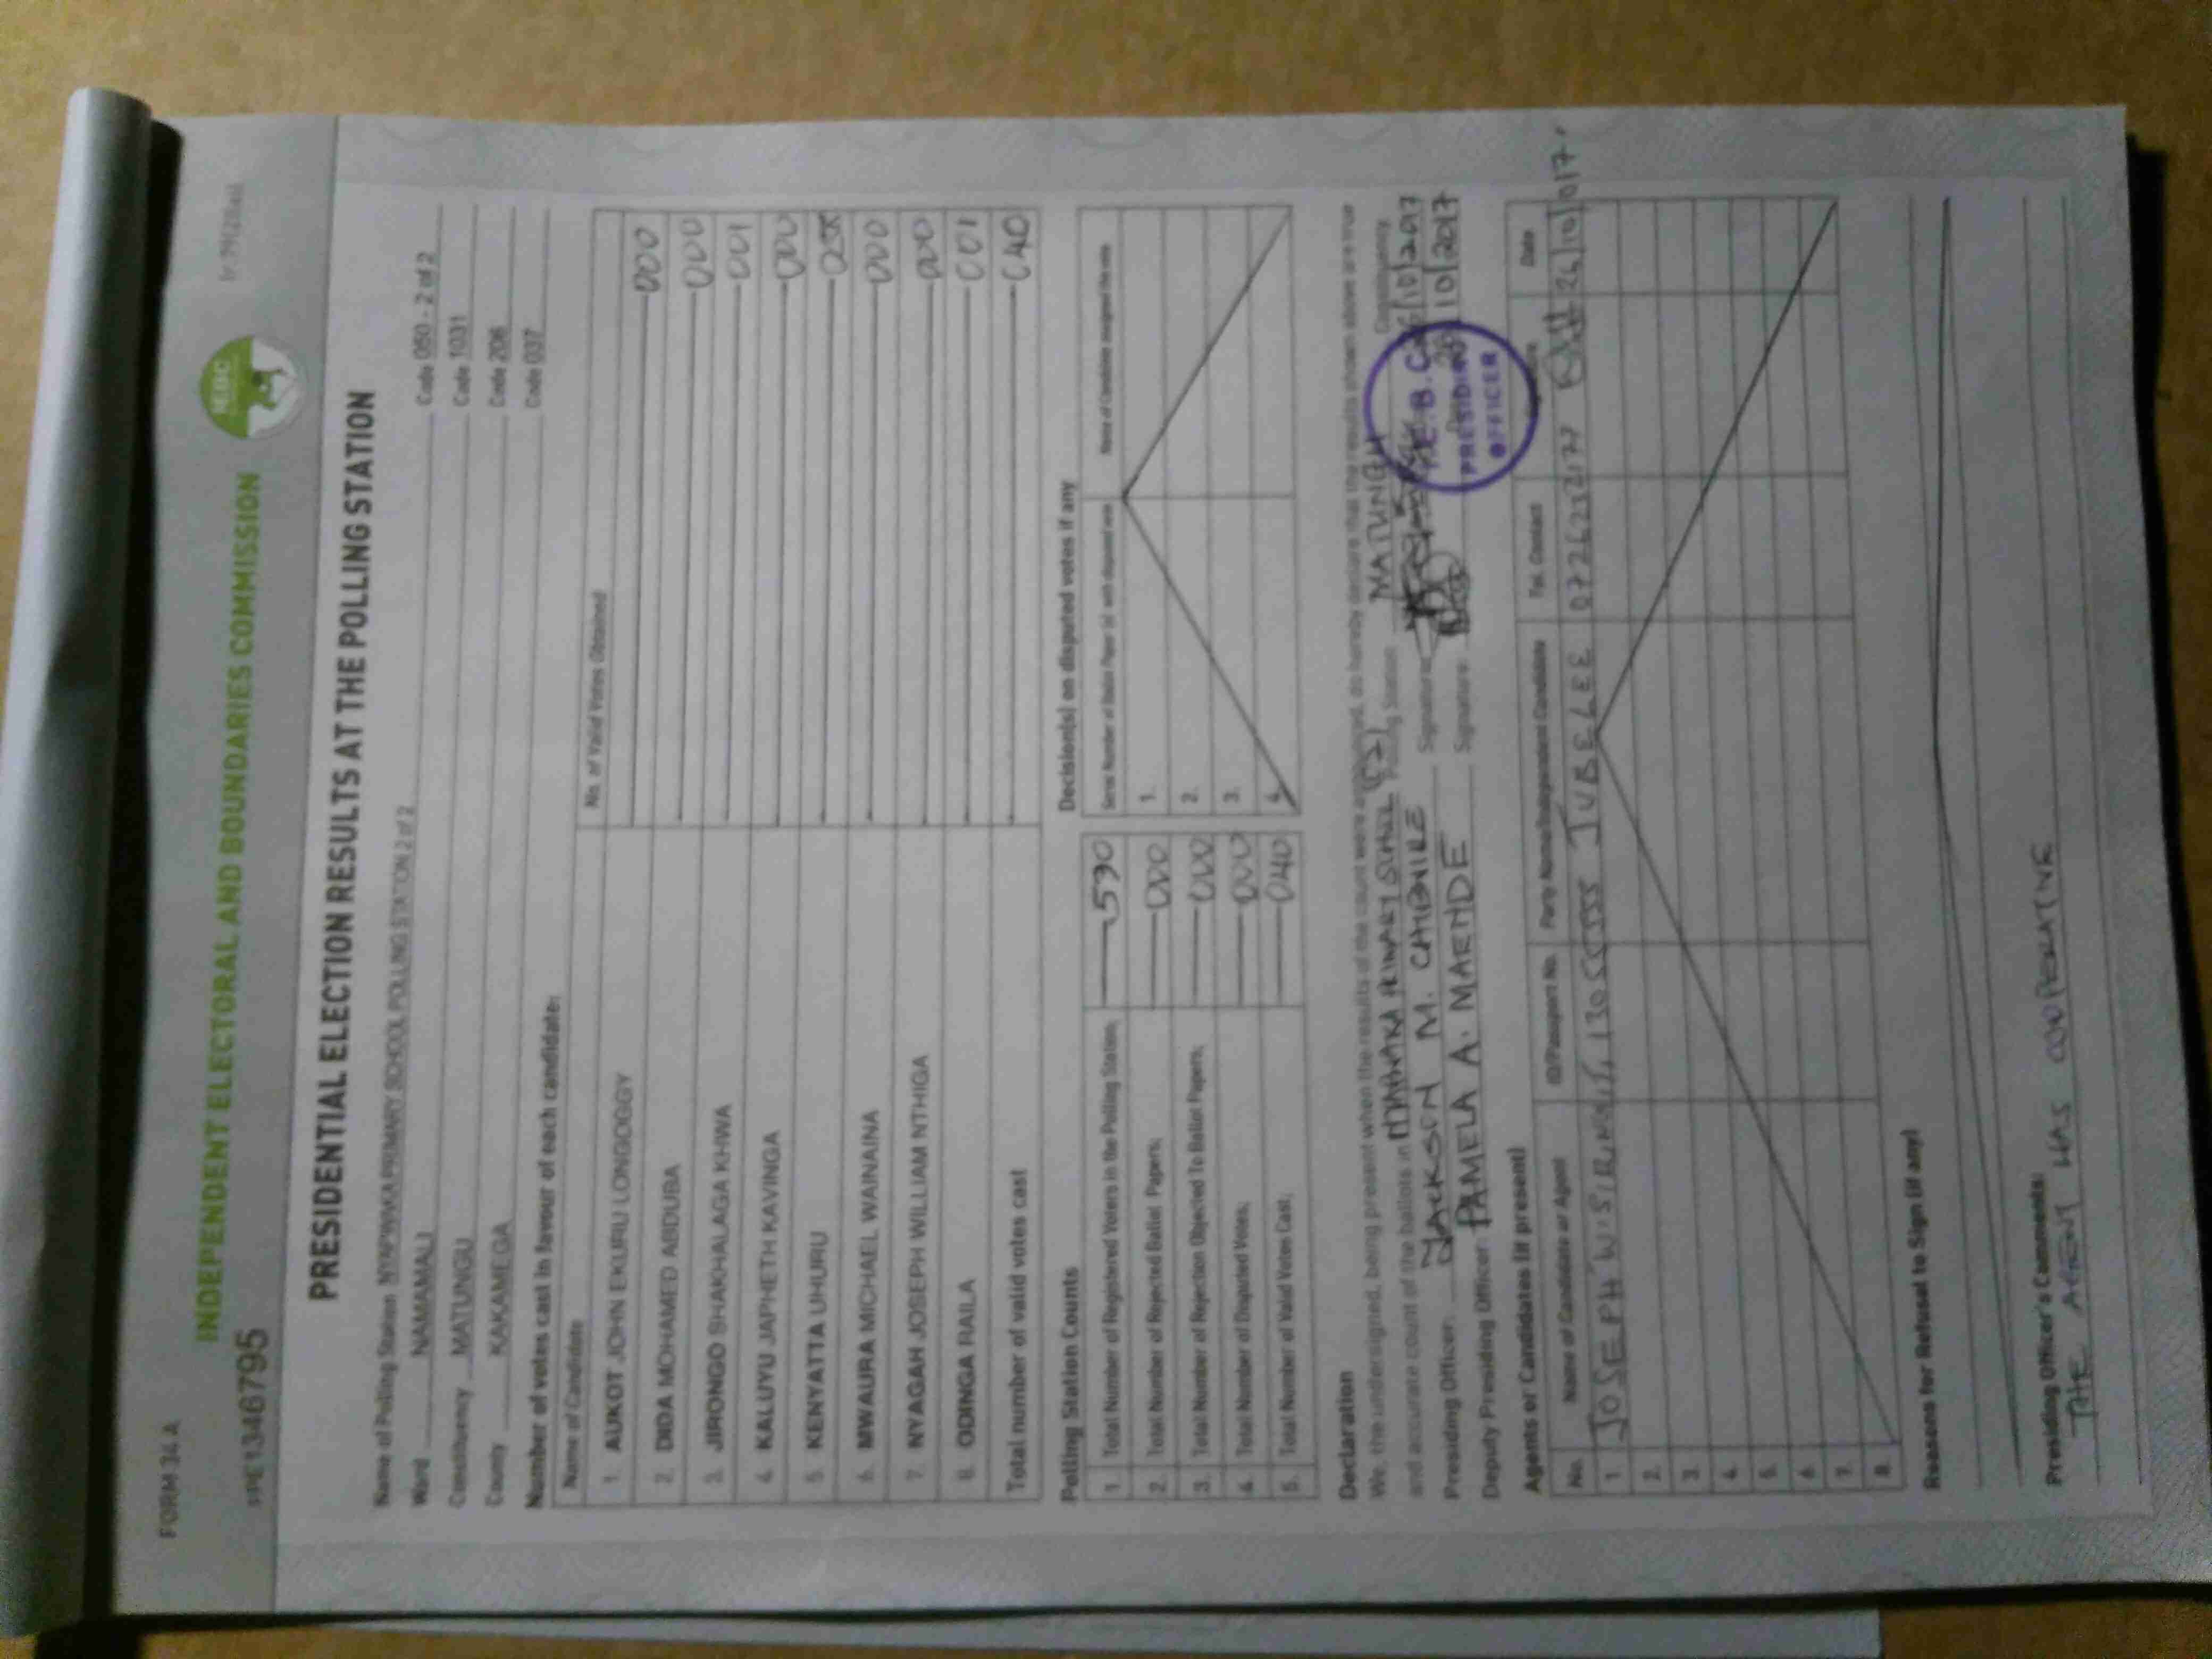 FORM 34 A
INDEPENDENT ELECTORAL AND BOUNDARIES COMMISSION
IEBC
PRESIDENTIAL ELECTION RESULTS AT THE POLLING STATION
Name of Polling Station PRIMARY SCHOOL POLLING STATION 2 of 2
Code 050 - 2 of 2
Ward NAMAMALI Code 1031
Constituency MATUNGU Code 206
County KAKAMEGA Code 037
Number of votes cast in favour of each candidate:
Name of Candidate No. of Valid Votes Obtained
1. AUKOT JOHN EKURU LONGOGGY 000
2. DIDA MOHAMED ABDUBA 000
3. JIRONGO SHAKHALAGA KHWA 001
4. KALUYU JAPHETH KAVINGA 000
5. KENYATTA UHURU
6. MWAURA MICHAEL WAINAINA 000
7. NYAGAH JOSEPH WILLIAM NTHIGA 000
8. ODINGA RAILA 001
Total number of valid votes cast 040
Polling Station Counts
1. Total Number of Registered Voters in the Polling Station; 590
2. Total Number of Rejected Ballot Papers; 000
3. Total Number of Rejection Objected To Ballot Papers; 000
4. Total Number of Disputed Votes; 000
5. Total Number of Valid Votes Cast; 040
Decision(s) on disputed votes if any
Serial Number of Ballot Paper (s) with disputed vote Name of Candidate assigned the vote
1.
2.
3.
4.
Declaration
We, the undersigned, being present when the results of the count were announced, do hereby declare that the results shown above are true
and accurate count of the ballots in PRIMARY SCHOOL Polling Station MATUNGU Constituency
Presiding Officer: JACKSON M. Signature 26/10/2017
Deputy Presiding Officer: PAMELA A. MAENDE Signature 10/2017
I.E.B.C
PRESIDING
OFFICER
Agents or Candidates (if present)
No. Name of Candidate or Agent ID/Passport No. Party Name/Independent Candidate Tel. Contact Signature Date
1. JOSEPH JUBELEE
2.
3.
4.
5.
6.
7.
8.
Reasons for Refusal to Sign (if any)
Presiding Officer's Comments:
THE AGENT WAS COOPERATIVE